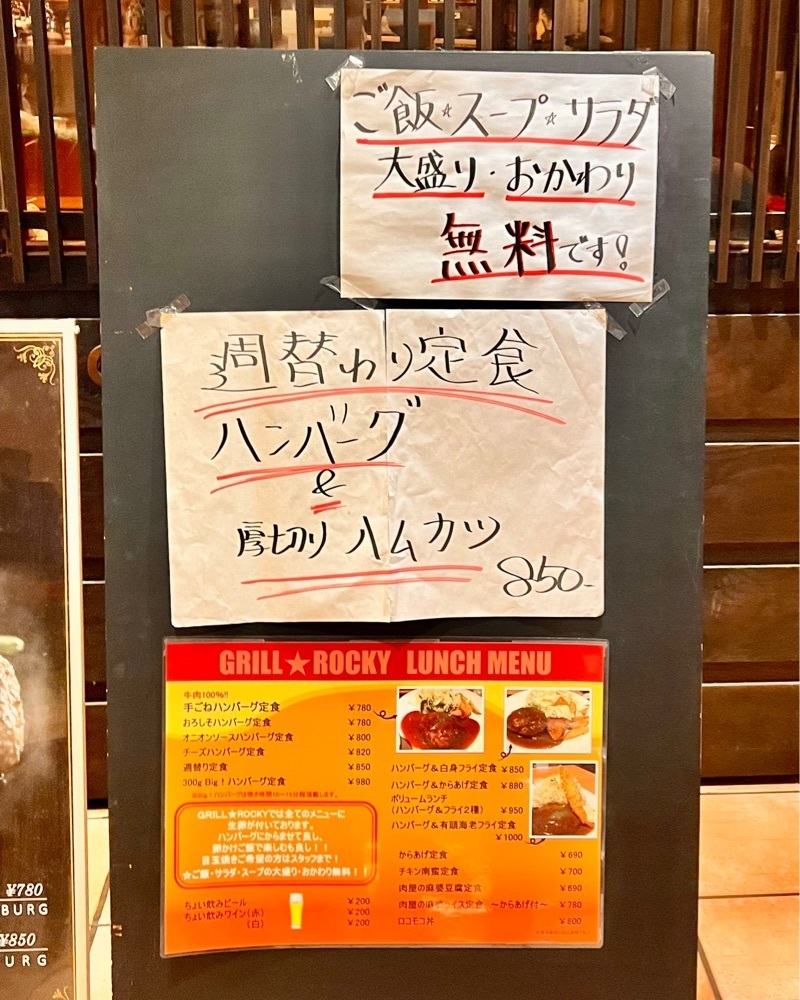 ご飯☆スープ☆サラダ
大盛り・おかわり
無料です!
週替わり定食
ハンバーグ
&
厚切りハムカツ
850-
GRILL★ROCKY LUNCH MENU
牛肉100%!!
手ごねハンバーグ定食 ¥780
おろしそハンバーグ定食 ¥780
オニオンソースハンバーグ定食 ¥800
チーズハンバーグ定食 ¥820
週替り定食 ¥850
300g Big!ハンバーグ定食 ¥980
GRILL★ROCKYでは全てのメニューに
生卵が付いております。
ハンバーグにからませて良し、
卵かけご飯で楽しむも良し!!
目玉焼きご希望の方はスタッフまで!
★ご飯・サラダ・スープの大盛り・おかわり無料!!
ちょい飲みビール ¥200
ちょい飲みワイン(赤) ¥200
(白) ¥200
ハンバーグ&白身フライ定食 ¥850
ハンバーグ&からあげ定食 ¥880
ボリュームランチ
(ハンバーグ&フライ2種) ¥950
ハンバーグ&有頭海老フライ定食
¥1000
からあげ定食 ¥690
チキン南蛮定食 ¥700
肉屋の麻婆豆腐定食 ¥690
肉屋の麻婆ライス定食 〜からあげ付〜 ¥780
ロコモコ丼 ¥800
¥780
BURG
¥850
URG